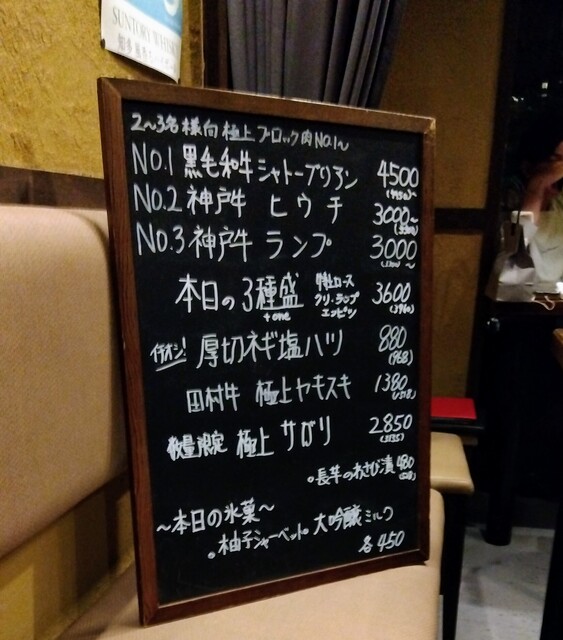 SUNTORY WHISKY
知多
2〜3名様向 極上ブロック肉 NO.1〜
NO.1 黒毛和牛 シャトーブリアン 4500
(4950)〜
NO.2 神戸牛 ヒウチ 3000〜
(3300)
NO.3 神戸牛 ランプ 3000
(3300)〜
本日の3種盛 特上ロース クリ、ランプ エンピツ 3600
+one (3960)
イチオシ! 厚切ネギ塩ハツ 880
(968)
田村牛 極上ヤキスキ 1380
(1518)
数量限定 極上サガリ 2850
(3135)
。長芋のわさび漬 480
〜本日の氷菓〜
。柚子シャーベット。大吟醸ミルク
各450